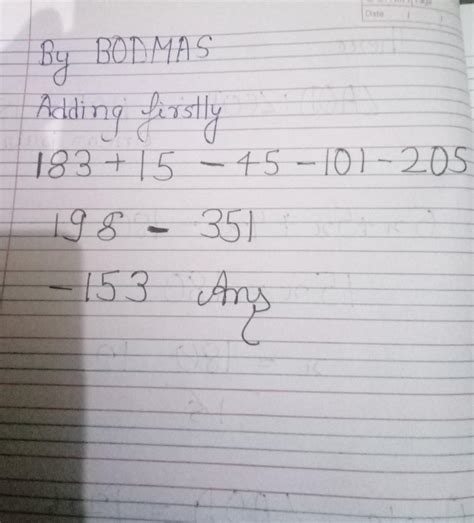 Date
By BODMAS
Adding firstly
183 + 15 - 45 - 101 - 205
198 - 351
- 153 Ans